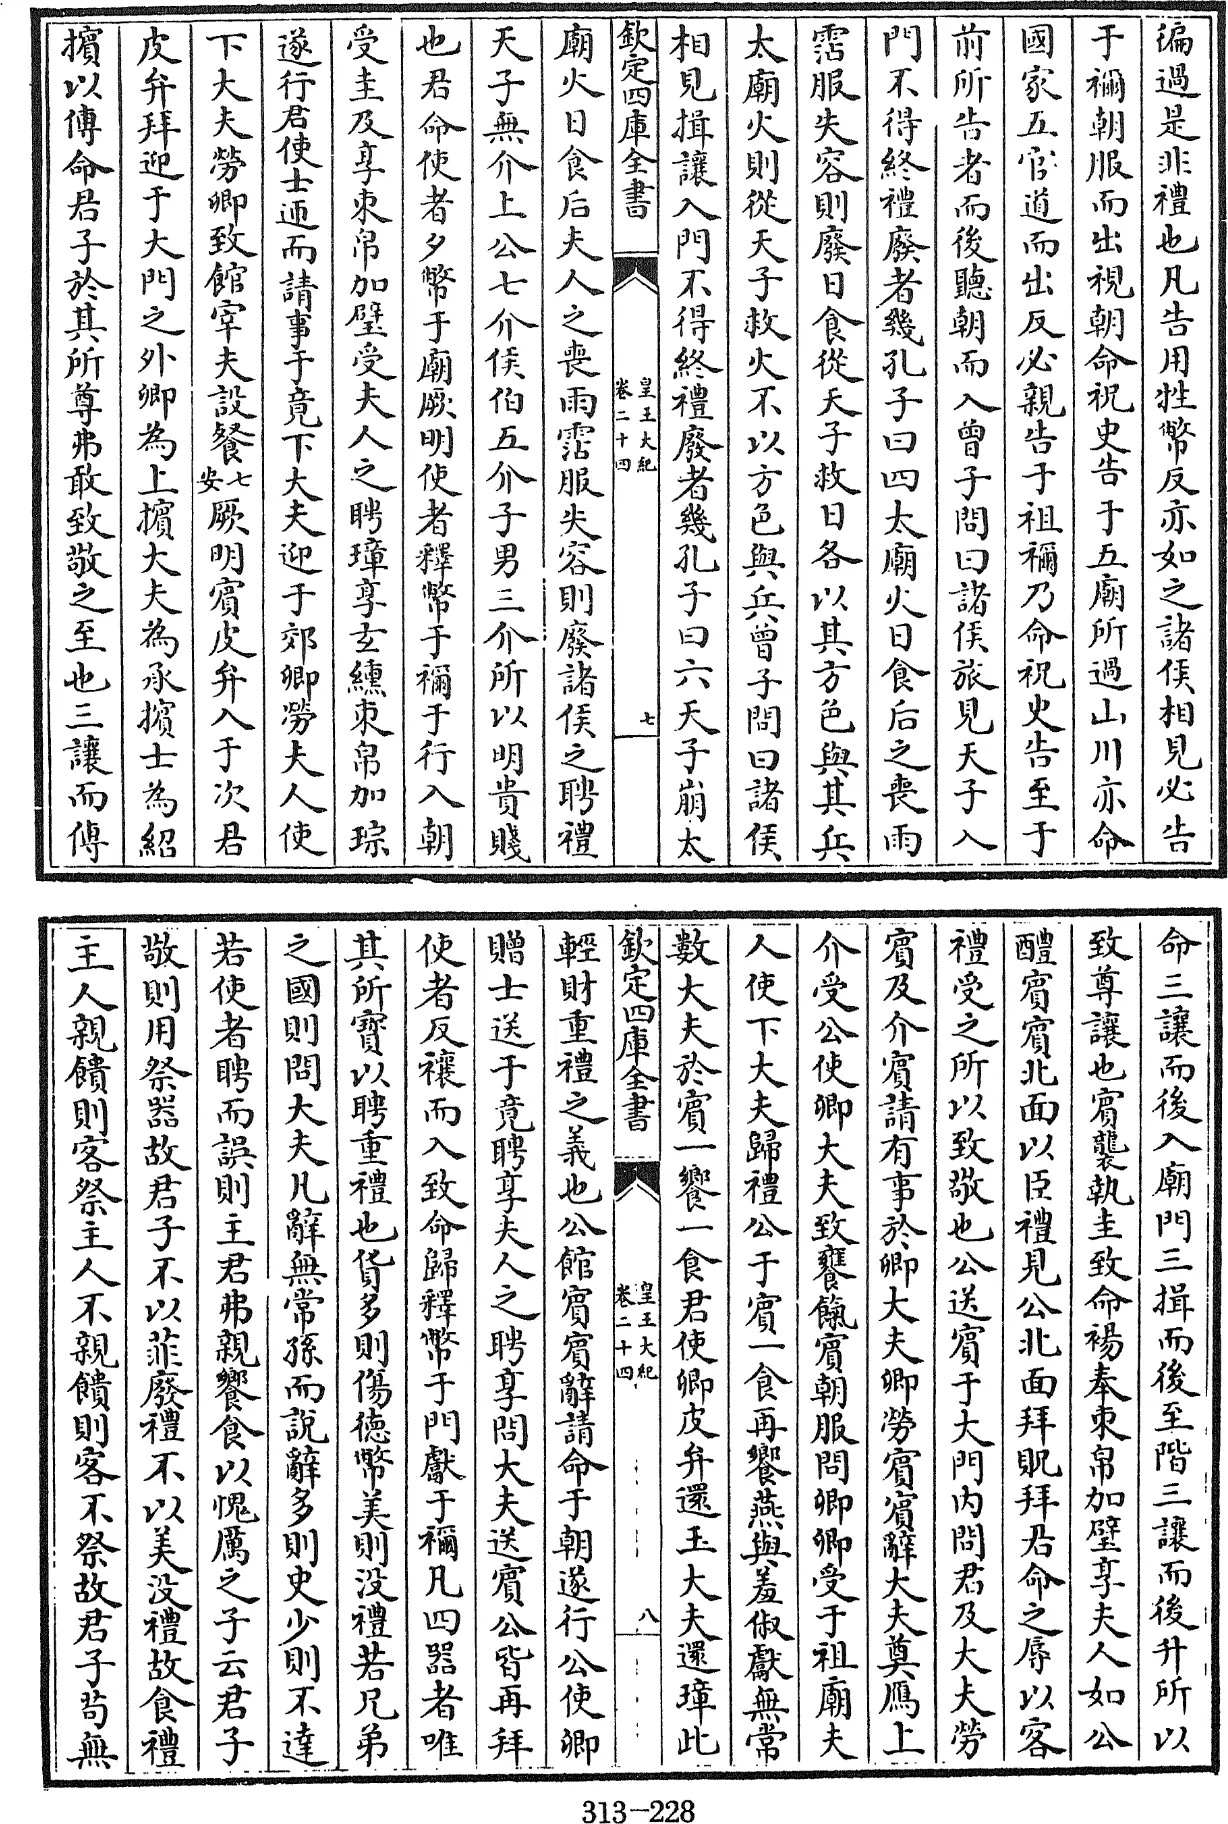 徧過是非禮也凡告用牲幣反亦如之諸侯相見必告
于禰朝服而出視朝命祝史告于五廟所過山川亦命
國家五官道而出反必親告于祖禰乃命祝史告至于
前所告者而後聽朝而入曾子問曰諸侯旅見天子入
門不得終禮廢者幾孔子曰四太廟火日食后之喪雨
霑服失容則廢日食從天子救日各以其方色與其兵
太廟火則從天子救火不以方色與兵曾子問曰諸侯
相見揖讓入門不得終禮廢者幾孔子曰六天子崩太
欽定四庫全書
皇王大紀
卷二十四
七
廟火日食后夫人之喪雨霑服失容則廢諸侯之聘禮
天子無介上公七介侯伯五介子男三介所以明貴賤
也君命使者夕幣于廟厥明使者釋幣于禰于行入朝
受圭及享束帛加璧受夫人之聘璋享玄纁束帛加琮
遂行君使士迊而請事于竟下大夫迎于郊卿勞夫人使
下大夫勞卿致館宰夫設餐七安厥明賓皮弁入于次君
皮弁拜迎于大門之外卿為上擯大夫為承擯士為紹
擯以傳命君子於其所尊弗敢致敬之至也三讓而傳
命三讓而後入廟門三揖而後至階三讓而後升所以
致尊讓也賓襲執圭致命裼奉束帛加璧享夫人如公
醴賓賓北面以臣禮見公北面拜貺拜君命之辱以客
禮受之所以致敬也公送賓于大門内問君及大夫勞
賓及介賓請有事於卿大夫卿勞賓賓辭大夫奠鴈上
介受公使卿大夫致饔餼賓朝服問卿卿受于祖廟夫
人使下大夫歸禮公于賓一食再饗燕與羞俶獻無常
數大夫於賓一饗一食君使卿皮弁還玉大夫還璋此
欽定四庫全書
皇王大紀
卷二十四
八
輕財重禮之義也公館賓賓辭請命于朝遂行公使卿
贈士送于竟聘享夫人之聘享問大夫送賓公皆再拜
使者反禳而入致命歸釋幣于門獻于禰凡四器者唯
其所寳以聘重禮也貨多則傷德幣美則没禮若兄弟
之國則問大夫凡辭無常孫而説辭多則史少則不達
若使者聘而誤則主君弗親饗食以愧厲之子云君子
敬則用祭器故君子不以菲廢禮不以美没禮故食禮
主人親饋則客祭主人不親饋則客不祭故君子苟無
313-228